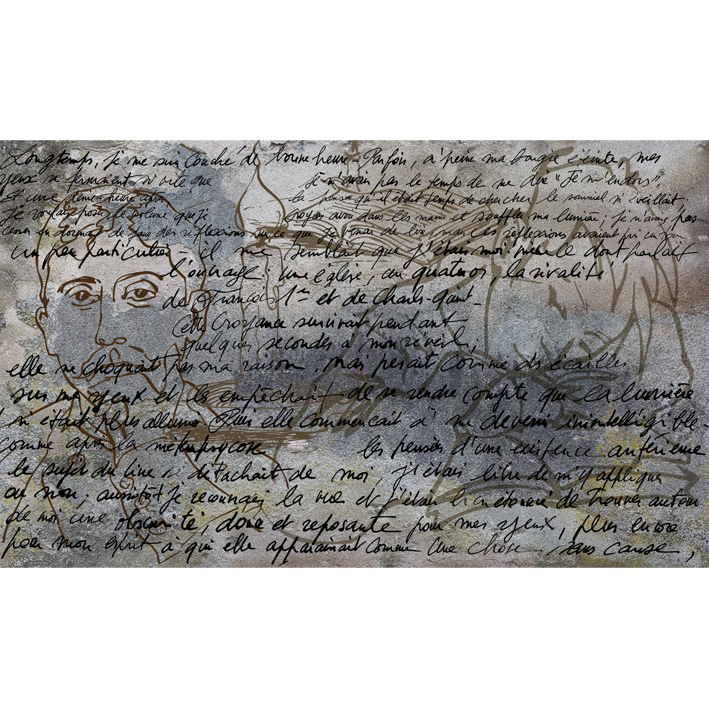 Longtemps, je me suis couché de bonne heure - Parfois, à peine ma bougie éteinte, mes
yeux se fermaient si vite que je n'avais pas le temps de me dire "Je m'endors"
Et une demi heure après la pensée qu'il était temps de chercher le sommeil m'éveillait,
Je voulais poser le volume que je croyais avoir dans les mains et souffler ma lumière; je n'avais pas
cessé en dormant de faire des réflexions sur ce que je venais de lire, mais ces réflexions avaient pris un tour
un peu particulier il me semblait que j'étais moi même ce dont parlait
l'ouvrage: une église, un quatuor, la rivalité
de François 1er et de Charles-Quint -
cette croyance survivait pendant
quelques secondes à mon réveil;
elle ne choquait pas ma raison, mais pesait comme des écailles
sur mes yeux et les empêchait de se rendre compte que la lumière
n'était plus allumée Puis elle commençait à me devenir inintelligible -
comme après la métempsycose les pensées d'une existence antérieure
le sujet du livre se détachait de moi, j'étais libre de m'y appliquer
ou non; aussitôt je recouvrais la vue et j'étais bien étonné de trouver autour
de moi une obscurité, douce et reposante pour mes yeux, plus encore
pour mon esprit à qui elle apparaissait comme une chose sans cause,